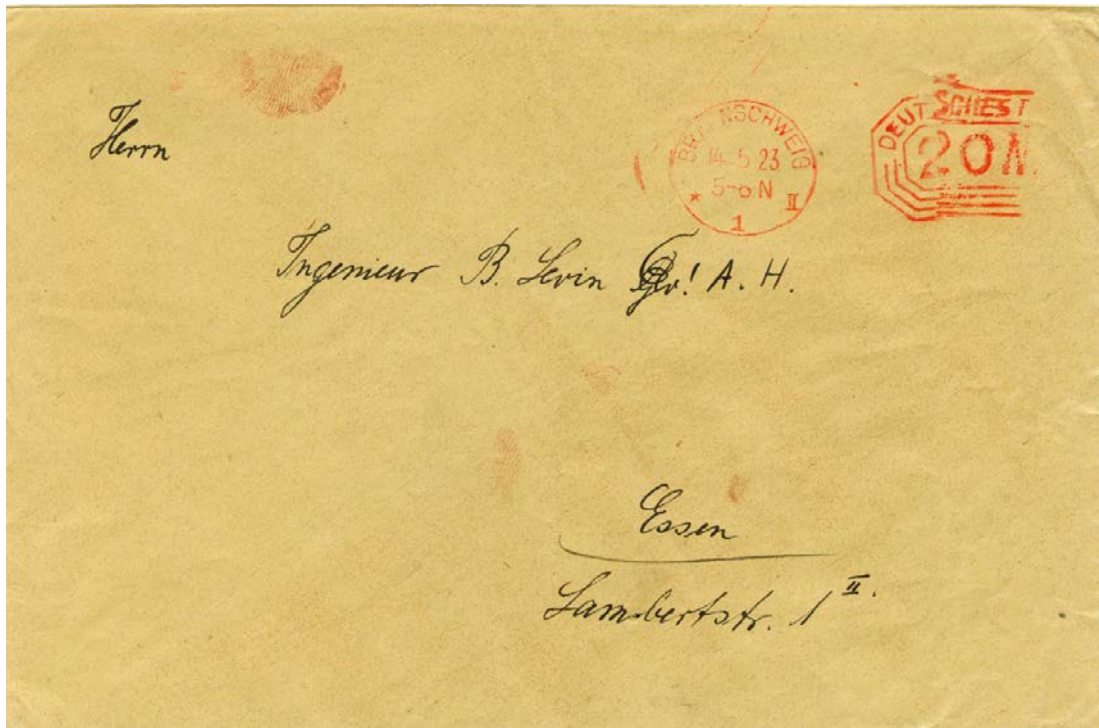 Herrn
BRAUNSCHWEIG
14.5.23
5-6 N
* 1 II
DEUTSCHES
20 M
Ingenieur B. Levin A. H.
Essen
Lambertstr. 1 II.